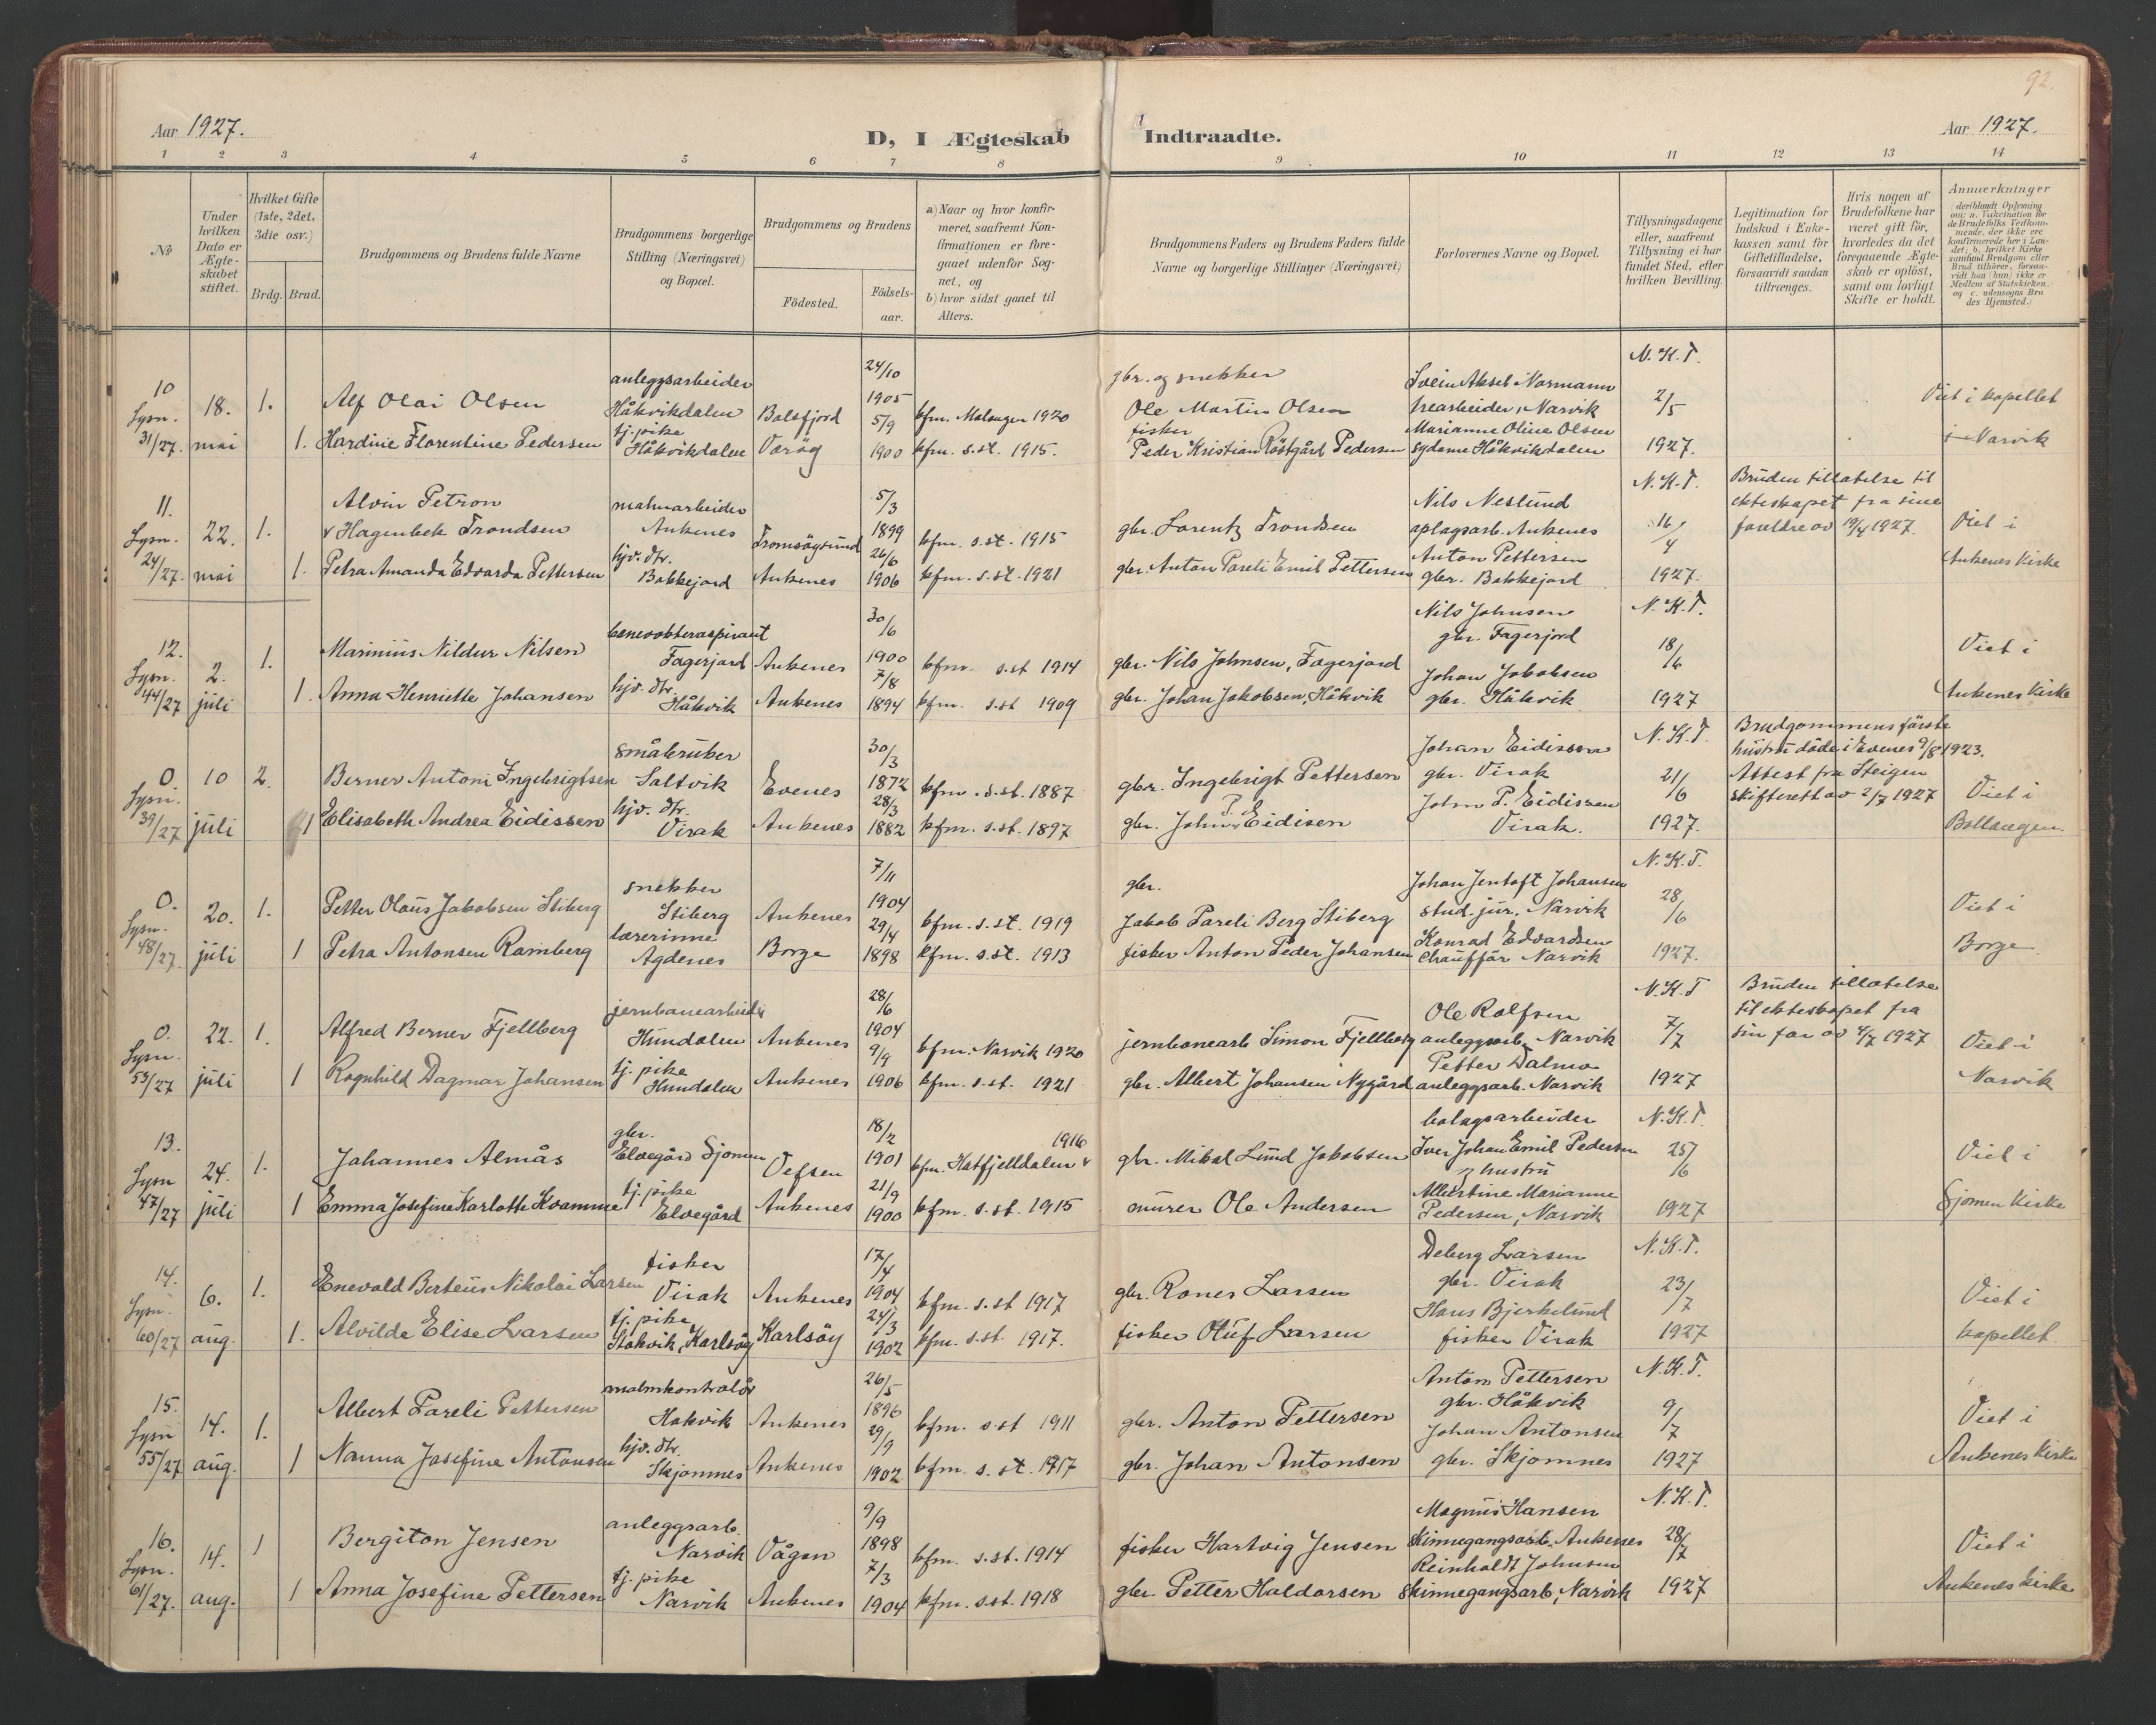 92
Aar 1927.
D, I Ægteskab Indtraadte.
Aar 1927.
1 2 3 4 5 6 7 8 9 10 11 12 13 14
№
Under hvilken Dato er Ægte-skabet stiftet.
Hvilket Gifte (1ste, 2det, 3die osv.)
Brdg. Brud.
Brudgommens og Brudens fulde Navne
Brudgommens borgerlige Stilling (Næringsvei) og Bopæl.
Brudgommens og Brudens
Födested.
Födsels-aar.
a) Naar og hvor konfir-meret, saafremt Kon-firmationen er fore-gaaet udenfor Sog-net, og
b) hvor sidst gaaet til Alters.
Brudgommens Faders og Brudens Faders fulde Navne og borgerlige Stillinger (Næringsvei)
Forlovernes Navne og Bopæl.
Tillysningsdagene eller, saafremt Tillysning ei har fundet Sted, efter hvilken Bevilling.
Legitimation for Indskud i Enke-kassen samt for Giftetilladelse, forsaavidt saadan tiltrænges.
Hvis nogen af Brudefolkene har været gift før, hvorledes da det foregaaende Ægte-skab er oplöst, samt om lovligt Skifte er holdt.
Anmærkninger (deriblandt Oplysning om: a. Vakcination for de Brudefolks Vedkom-mende, der ikke ere konfirmerede her i Lan-det; b. hvilket Kirke-samfund Brudgom eller Brud tilhörer, forsaa-vidt han (hun) ikke er Medlem af Statskirken. og c. udensogns Bru-des Hjemsted.)
10 Lysn. 31/27. 18. mai
1. Alf Olai Olsen anleggsarbeider Håkvikdalen Balsfjord 24/10 1905 kfm. Malangen 1920 gbr. og snekker Ole Martin Olsen
1. Hardine Florentine Pedersen tj. pike Håkvikdalen Værøy 5/9 1900 kfm. s.st. 1915. fisker Peder Kristian Röstgård Pedersen
Svein Aksel Normann trearbeider, Narvik
Marianne Oline Olsen sydame Håkvikdalen
N.K.T. 2/5 1927. Viet i kapellet i Narvik
11. Lysn. 24/27. 22. mai
1. Alvin Petron v Hagenbek Trondsen malmarbeider Ankenes Tromsöysund 5/3 1899 kfm. s.st. 1915 gbr. Lorentz Trondsen
1. Petra Amanda Edvarda Pettersen hjv. dtr. Bakkejord Ankenes 26/6 1906 kfm. s.st. 1921 gbr. Anton Pareli Emil Pettersen
Nils Neslund oplagsarb. Ankenes
Anton Pettersen gbr. Bakkejord
N.K.T. 16/4 1927.
Bruden tillatelse til ekteskapet fra sine foreldre av 19/4 1927. Viet i Ankenes Kirke
12. Lysn. 44/27 2. juli
1. Marinius Nildur Nilsen banevokteraspirant Fagerjord Ankenes 30/6 1900 kfm. s.st 1914 gbr. Nils Johnsen, Fagerjord
1. Anna Henriette Johansen hjv. dtr. Håkvik Ankenes 7/8 1894 kfm. s.st 1909 gbr. Johan Jakobsen, Håkvik
Nils Johnsen gbr. Fagerjord
Johan Jakobsen gbr. Håkvik
N.K.T. 18/6 1927 Viet i Ankenes Kirke
0. Lysn. 39/27 10 juli
2. Berner Antoni Ingebrigtsen småbruker Saltvik Evenes 30/3 1872 kfm. s.st. 1887 gbr. Ingebrigt Pettersen
1 Elisabeth Andrea Eidissen hjv. dtr. Virak Ankenes 28/3 1882 kfm. s.st. 1897 gbr. John P. Eidisen
Johan Eidissen gbr. Virak
John P. Eidissen Virak.
N.K.T. 21/6 1927.
Brudgommens förste hustru döde i Evenes 9/8 1923. Attest fra Steigen skifterett av 2/7 1927 Viet i Ballangen.
0. Lysn. 48/27 20. juli
1. Petter Olaus Jakobsen Stiberg snekker Stiberg Ankenes 7/11 1904 kfm. s.st. 1919 gbr. Jakob Pareli Berg Stiberg
1 Petra Antonsen Ramberg lærerinne Agdenes Borge 29/4 1898 kfm. s.st. 1913 fisker Anton Peder Johansen
Johan Jentoft Johansen stud. jur. Narvik
Konrad Edvardsen Chauffär Narvik
N.K.T. 28/6 1927. Viet i Borge
0. Lysn. 53/27 22. juli
1. Alfred Berner Fjellberg jernbanearbeider Hundalen Ankenes 28/6 1904 kfm. Narvik 1920 jernbanearb Simon Fjellberg
1 Ragnhild Dagmar Johansen tj. pike Hundalen Ankenes 9/9 1906 kfm. s.st. 1921 gbr. Albert Johansen Nygård
Ole Rolfsen anleggsarb. Narvik
Petter Dalmo anleggsarb. Narvik
N.K.T 7/7 1927
Bruden tillatelse til ekteskapet fra sin far av 4/7 1927 Viet i Narvik
13. Lysn 47/27 24. juli
1. Johannes Almås gbr. Elvegård Sjomen Vefsen 18/2 1901 kfm. Hatfjelldalen v 1916 gbr. Mikal Lund Jakobsen
1 Emma Josefine Karlotte Kvamme tj. pike Elvegård Ankenes 21/9 1900 kfm. s.st. 1915 murer Ole Andersen
bolagsarbeider Iver Johan Emil Pedersen og hustru
Albertine Marianne Pedersen, Narvik
N.K.T. 25/6 1927 Viet i Sjomen Kirke
14. Lysn. 60/27 6. aug.
1. Enevald Berteus Nikolai Larsen fisker Virak Ankenes 17/4 1904 kfm. s.st 1917 gbr. Raner Larsen
1. Alvilda Elise Larsen tj. pike Håkvik, Karlsöy Karlsöy 24/3 1902 kfm. s.st. 1917. fisker Oluf Larsen
Deberg Larsen gbr. Virak
Hans Bjerkelund fisker Virak
N.K.T. 23/7 1927 Viet i kapellet
15. Lysn 55/27 14. aug.
1. Albert Pareli Pettersen malmkontrolör Håkvik Ankenes 26/5 1896 kfm. s.st 1911 gbr. Anton Pettersen
1 Nanna Josefine Antonsen hjv. dtr. Skjomnes Ankenes 29/9 1902 kfm. s.st. 1917 gbr. Johan Antonsen
Anton Pettersen gbr. Håkvik
Johan Antonsen gbr. Skjomnes
N.K.T. 9/7 1927 Viet i Ankenes Kirke
16. Lysn. 61/27. 14. aug.
1 Bergiton Jensen anleggsarb. Narvik Vågan 9/9 1898 kfm. s.st. 1914 fisker Hartvig Jensen
1 Anna Josefine Pettersen tj. pike Narvik Ankenes 7/3 1904 kfm. s.st. 1918 gbr Petter Haldorsen
Magnus Hansen skinnegangsarb. Ankenes
Reinholdt Johnsen skinnegangsarb, Narvik
N.K.T. 28/7 1927 Viet i Ankenes Kirke